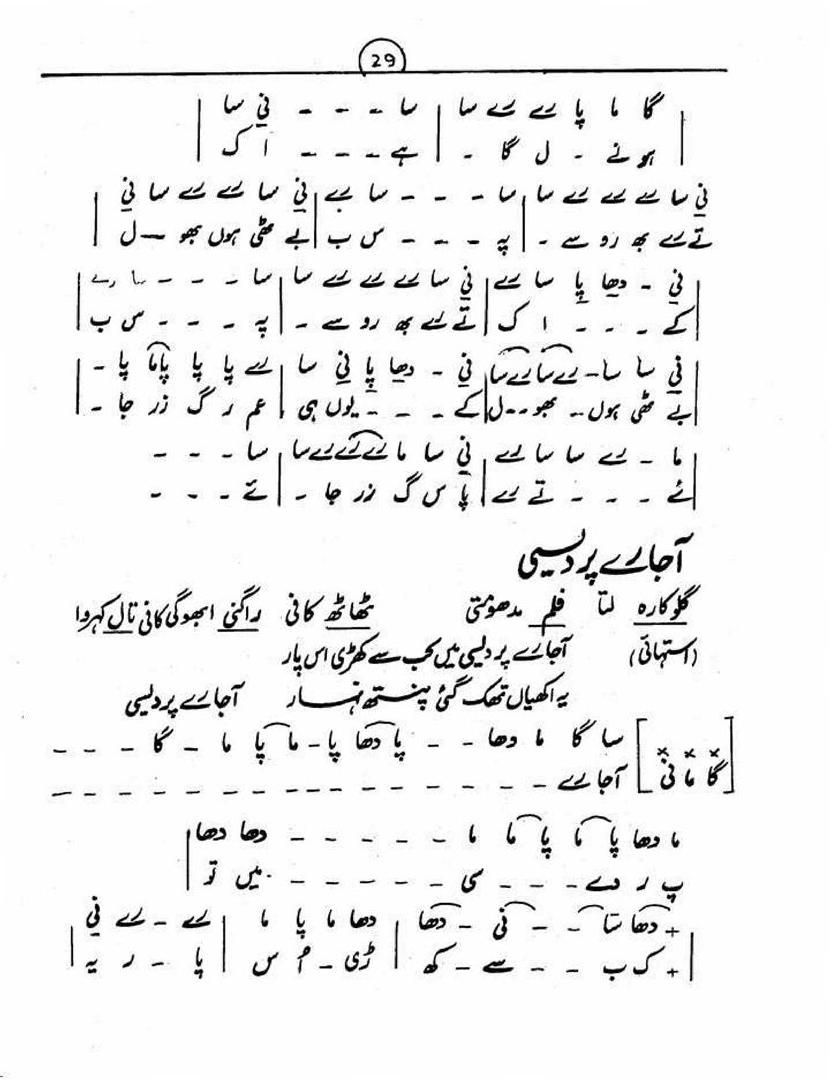 29
گا ما پا رے رے سا | سا - - - نی سا |
ہونے - ل گا - | ہے - - - ا ک |
نی سا رے رے رے سا | سا - - - سا رے | نی سا رے رے سا نی |
تے رے بھ رو سے - | پہ - - - س ب | بے ٹھی ہوں بھو - ل |
نی - دھا پا سا رے | نی سا رے رے رے سا | سا - - - سا رے |
کے - - - ا ک | تے رے بھ رو سے - | پہ - - - س ب |
نی سا سا - رے سا رے سا | نی - دھا پا نی سا | رے پا پا پا ما پا - |
بے ٹھی ہوں - بھو - - ل | کے - - - یوں ہی | عم ر گ زر جا - |
ما - رے سا سا رے | نی سا ما رے رے رے سا | سا - - -
ئے - - - تے رے | پا س گ زر جا - | ئے - - -
آجا رے پردیسی
گلوکارہ لتا فلم مدھومتی ٹھاٹھ کافی راگنی ابھوگی کافی تال کہروا
(استھائی) آجا رے پردیسی میں کب سے کھڑی اس پار
یہ اکھیاں تھک گئی پنتھ نہار آجا رے پردیسی
[ × × × گا ما نی ] سا گا ما دھا - - پا دھا پا - ما پا ما - گا - - -
آجا رے - - - - - - - - - - - - - -
ما دھا پا ما پا ما ما - - - - - - دھا دھا |
پ ر دے - - - سی - - - - - - میں تو |
+ دھا سا - - نی - دھا | دھا ما پا ما | رے - رے نی |
+ ک ب - - سے - کھ | ڑی - اُ س | پا - ر یہ |